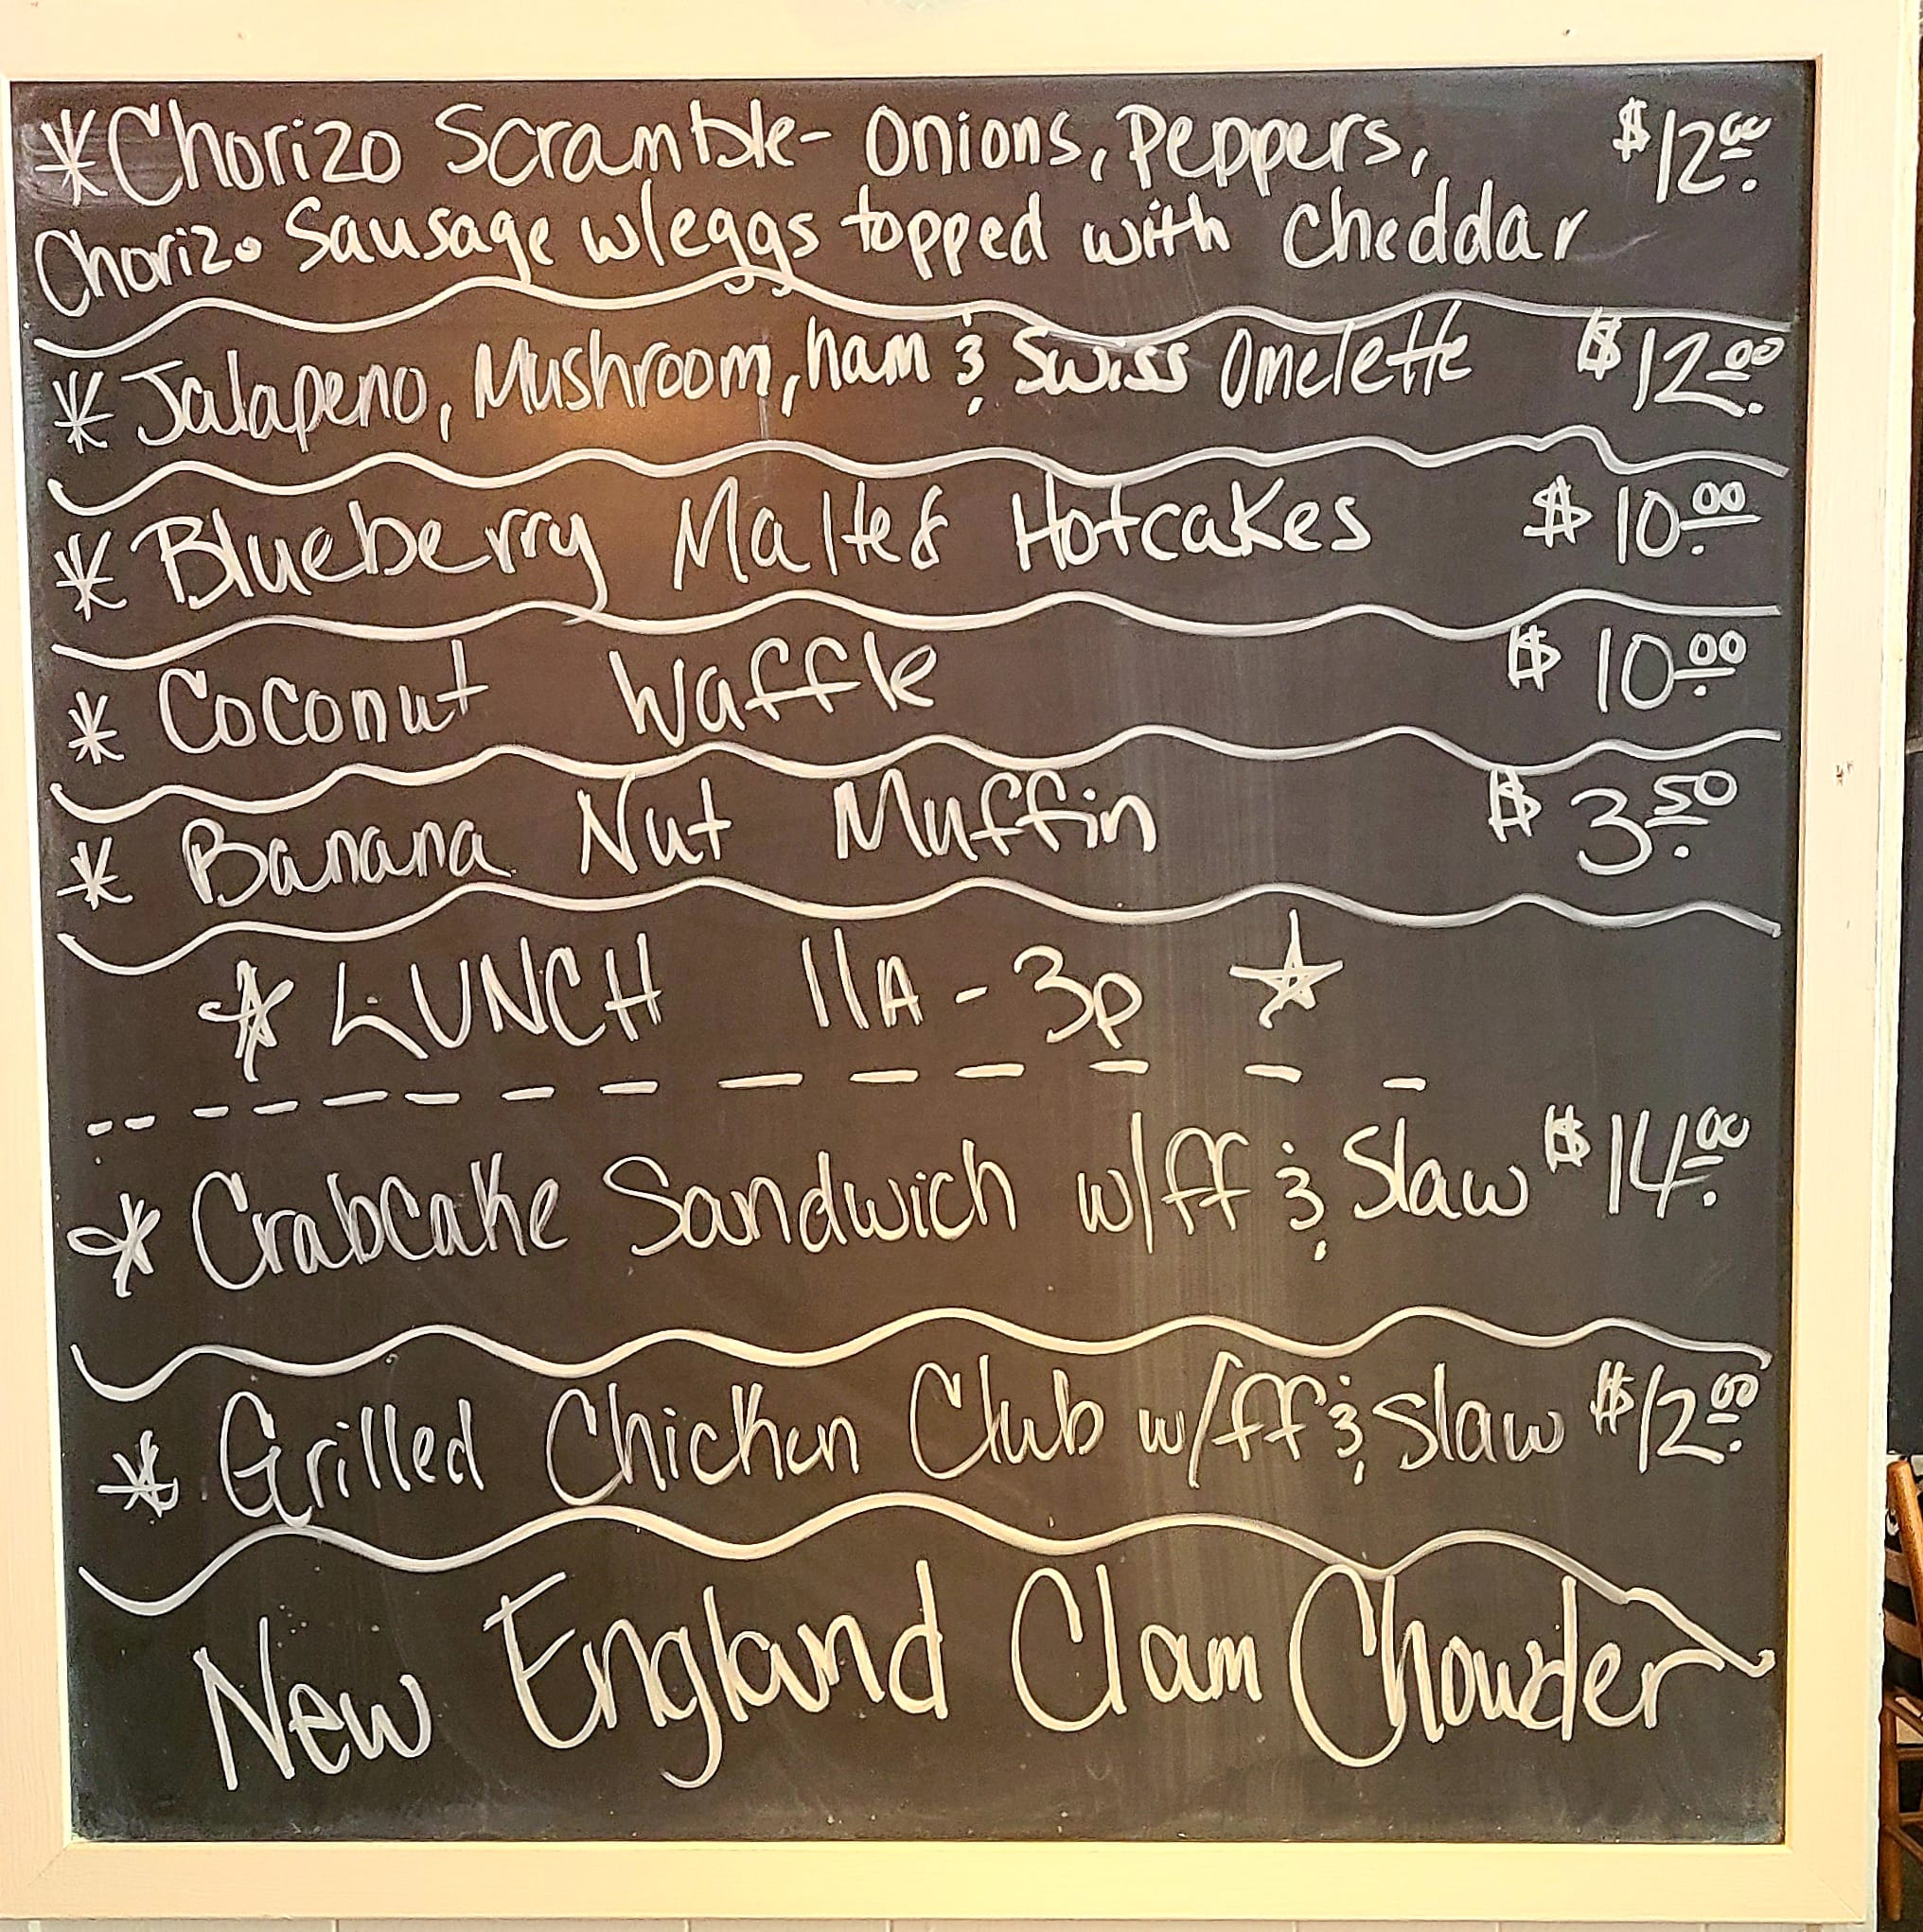 *Chorizo Scramble- Onions, Peppers, $12.00
Chorizo Sausage w/eggs topped with cheddar
* Jalapeno, Mushroom, ham & Swiss Omelette $12.00
* Blueberry Malted Hotcakes $10.00
* Coconut Waffle $10.00
* Banana Nut Muffin $3.50
☆ LUNCH 11A - 3p ☆
* Crabcake Sandwich w/ff & Slaw $14.00
* Grilled Chicken Club w/ff & Slaw $12.00
New England Clam Chowder